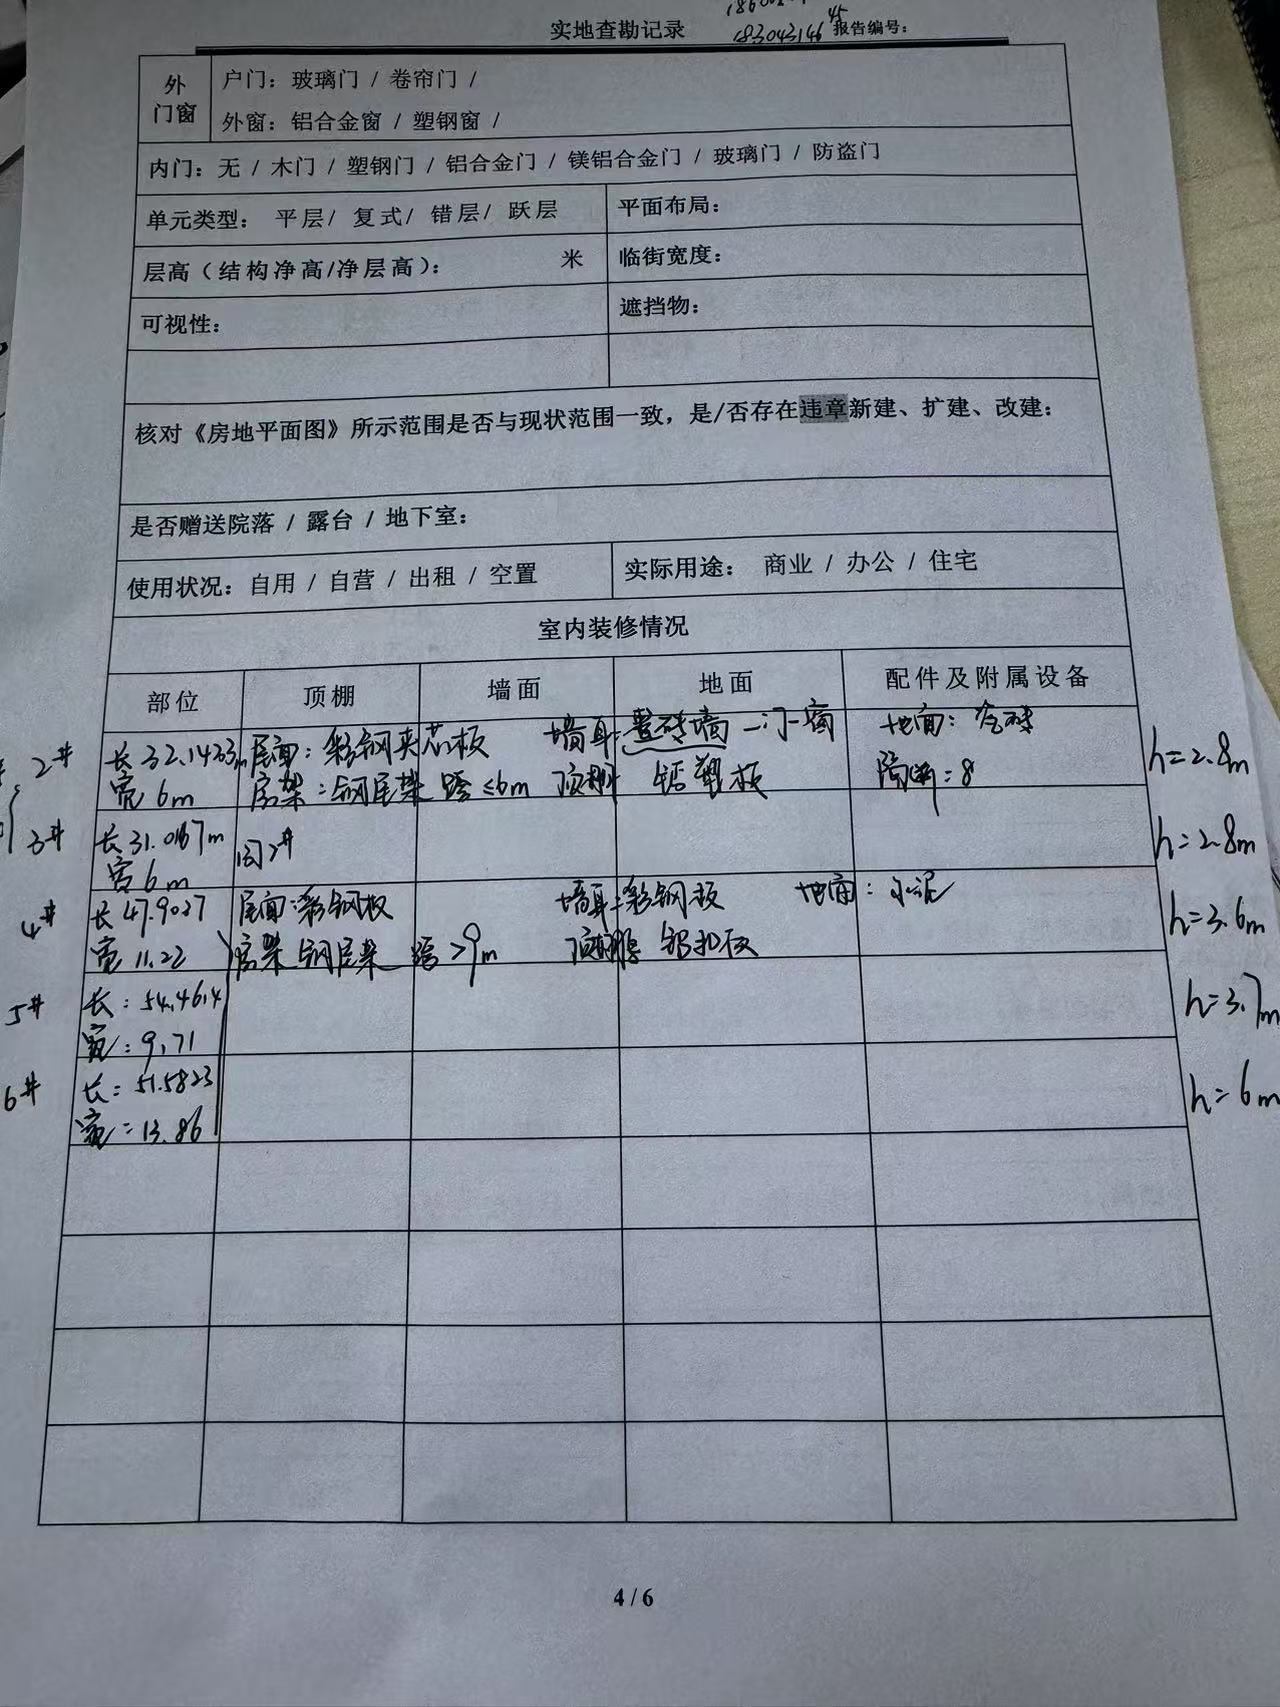 实地查勘记录
183043146 45
报告编号：
外门窗
户门：玻璃门 / 卷帘门 /
外窗：铝合金窗 / 塑钢窗 /
内门：无 / 木门 / 塑钢门 / 铝合金门 / 镁铝合金门 / 玻璃门 / 防盗门
单元类型： 平层/ 复式/ 错层/ 跃层
平面布局：
层高（结构净高/净层高）： 米
临街宽度：
可视性：
遮挡物：
核对《房地平面图》所示范围是否与现状范围一致，是/否存在违章新建、扩建、改建：
是否赠送院落 / 露台 / 地下室：
使用状况：自用 / 自营 / 出租 / 空置
实际用途： 商业 / 办公 / 住宅
室内装修情况
部位 顶棚 墙面 地面 配件及附属设备
2# 长32.1433m 屋面：彩钢夹芯板 墙身：砖墙 一门一窗 地面：瓷砖 h=2.8m
宽6m 房架：钢屋架 跨≤6m 顶棚 铝塑板 隔断：8
3# 长31.0167m 同2# h=2.8m
宽6m
4# 长47.9027 屋面：彩钢板 墙身：彩钢板 地面：水泥 h=3.6m
宽11.22 房架 钢屋架 跨>9m 顶棚 铝扣板
5# 长：54.4614 h=3.7m
宽：9.71
6# 长：51.5823 h=6m
宽：13.86
4 / 6